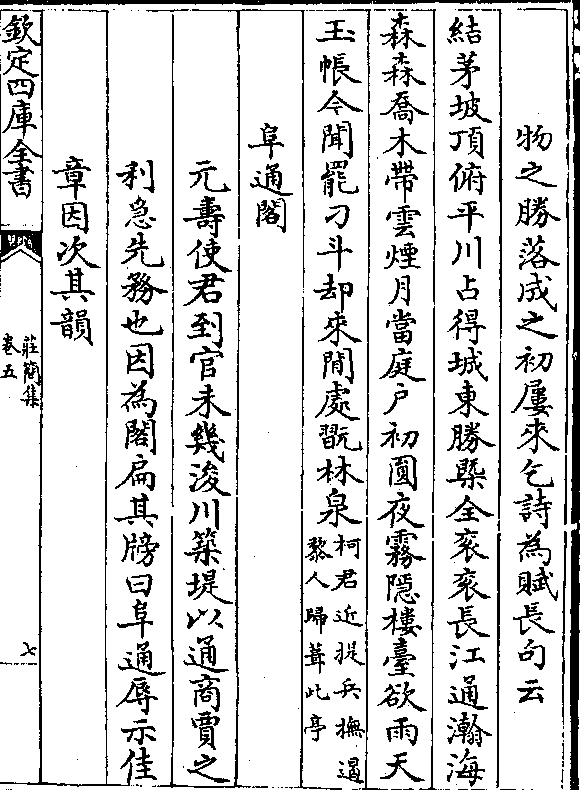 物之勝落成之初屢來乞詩為賦長句云
結茅坡頂俯平川占得城東勝槩全衮衮長江通瀚海
森森喬木帶雲煙月當庭戶初圓夜霧隱樓臺欲雨天
玉帳令聞罷刁斗却來閒處翫林泉柯君近提兵撫遏
黎人歸葺此亭
阜通閣
元壽使君到官未幾浚川築堤以通商賈之
利急先務也因為閣扁其牓曰阜通辱示佳
章因次其韻
欽定四庫全書
莊簡集
卷五
七